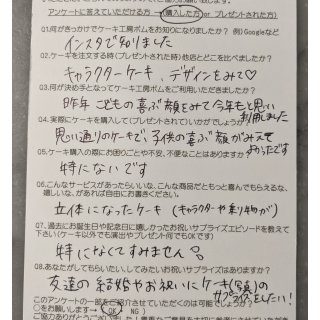 アンケートに答えていただける方 → 購入した方 or プレゼントされた方)
Q1.何がきっかけでケーキ工房ボムをお知りになりましたか? 例)Googleなど
インスタで知りました
Q2.ケーキを注文する時(プレゼントされた時)他店とどこを比べましたか?
キャラクターケーキ、デザインをみて♡
Q3.何が決め手となってケーキ工房ボムをご利用いただきましたか?
昨年 こどもの喜ぶ顔をみて今年もと思い
利用しました
Q4.実際にケーキを購入して(プレゼントされて)いかがでしょうか?
思い通りのケーキで、子供の喜ぶ顔がみえて
よかったです
Q5.ケーキ購入の際にお困りごとや不安、不便なことはありますか?
特にないです
Q6.こんなサービスがあったらいいな、こんな商品だともっと喜んでもらえるな、
嬉しいな、があれば自由にお書きください。
立体になったケーキ (キャラクターや乗り物が)
Q7.過去にお誕生日や記念日に嬉しかったお祝いサプライズエピソードを教えて
下さい(ケーキ以外でも演出やプレゼント何でもOKです)
特になくてすみません
Q8.あなたがしてもらいたい、してみたいお祝いサプライズはありますか?
友達の結婚やお祝いにケーキ(写真)の
サプライズをしたい!
このアンケートの一部をご紹介させていただくのは可能でしょうか?
○をお願いします→ (OK NG )